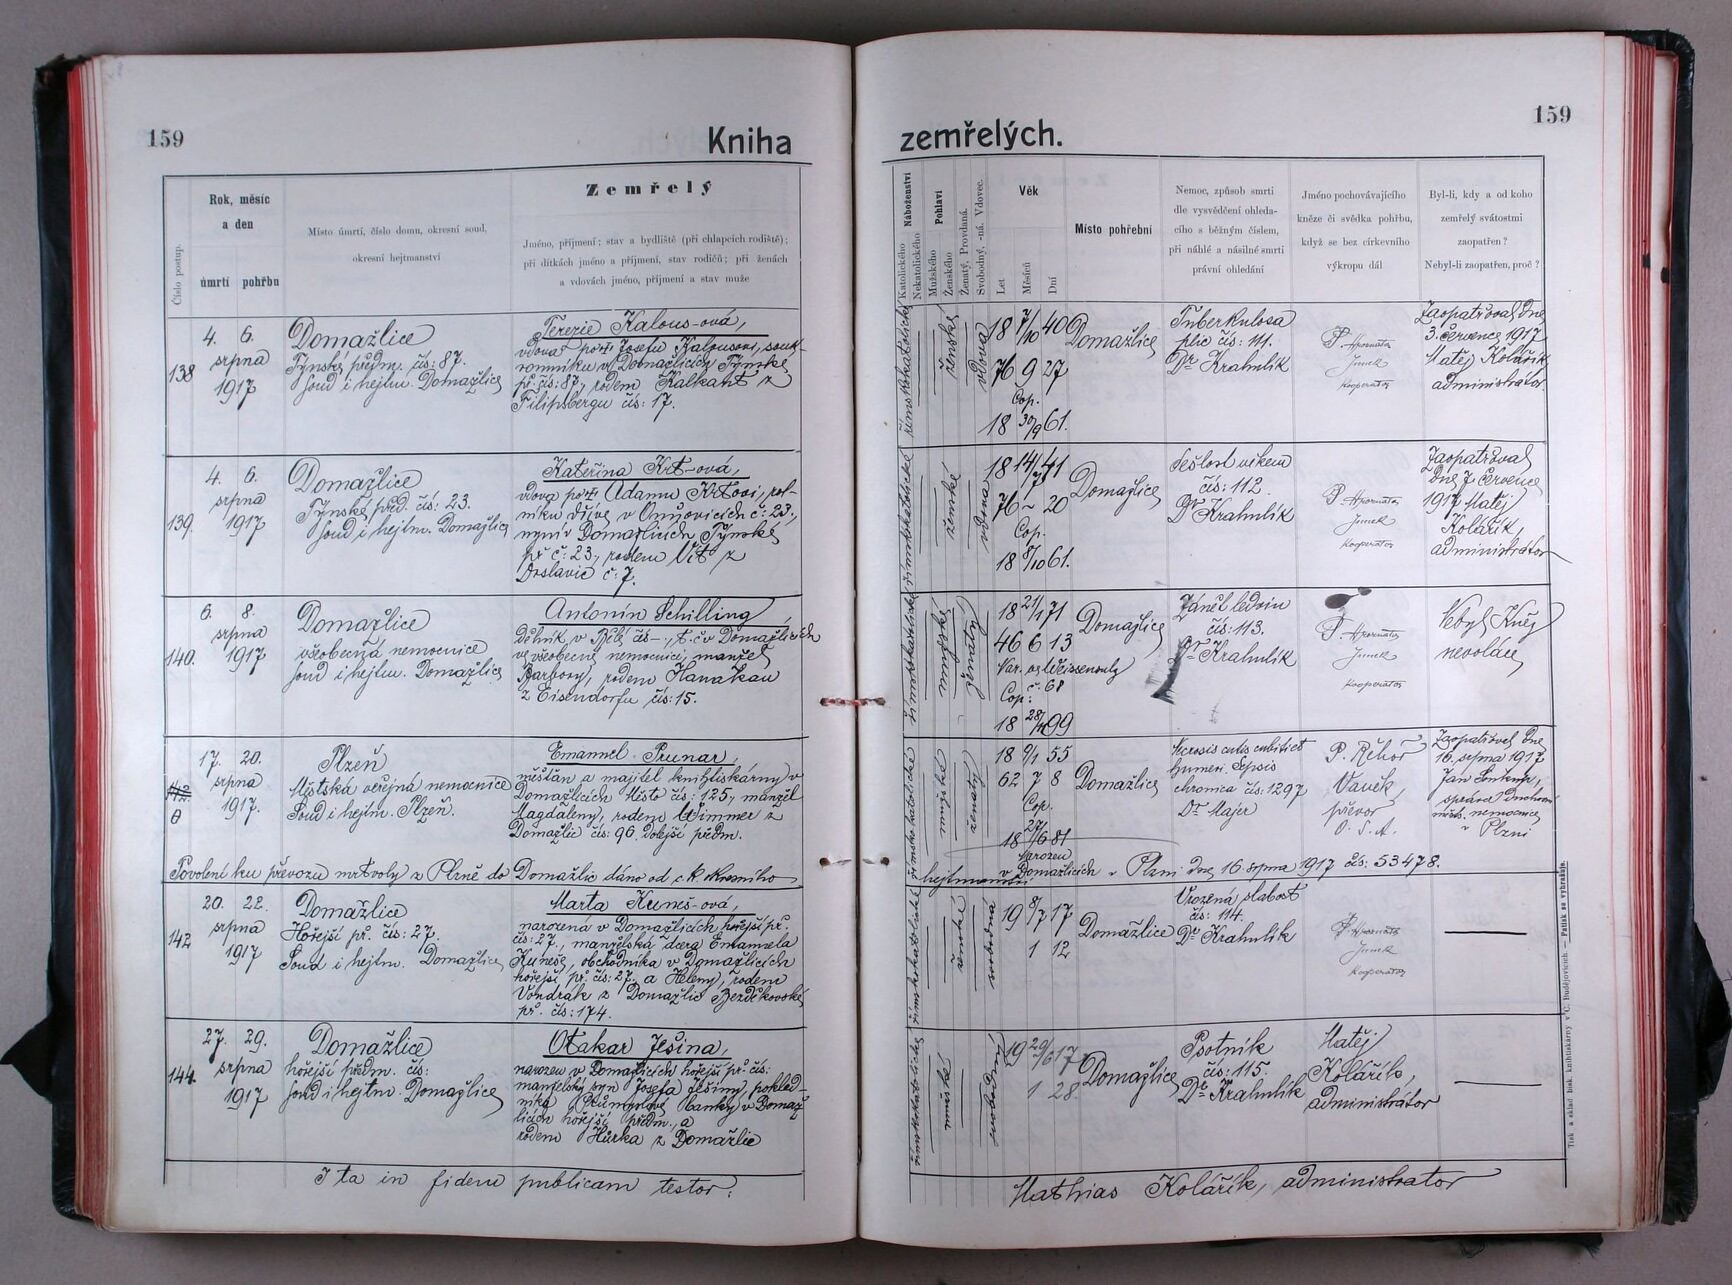 159
Kniha
Číslo postup.
Rok, měsíc
a den
úmrtí pohřbu
Místo úmrtí, číslo domu, okresní soud,
okresní hejtmanství
Zemřelý
Jméno, příjmení; stav a bydliště (při chlapcích rodiště);
při dítkách jméno a příjmení, stav rodičů; při ženách
a vdovách jméno, příjmení a stav muže
138
4. 6.
srpna
1917
Domažlice
Týnské předm. čís: 87.
Soud i hejtm. Domažlice
Terezie Kalous-ová,
vdova po Josefu Kalousovi, souk-
romníku v Domažlicích Týnské
př. čís: 87., rodem Kalkant z
Filipsbergu čís: 17.
139.
4. 6.
srpna
1917
Domažlice
Týnské před. čís: 23.
Soud i hejtm. Domažlice
Kateřina Krt-ová,
vdova po Adamu Krtovi, rol-
níku dříve v č: 23.,
nyní v Domažlicích Týnské
př č: 23., rodem Vít z
Draslavic č: 7.
140.
6. 8.
srpna
1917
Domažlice
všeobecná nemocnice
soud i hejtm. Domažlice
Antonín Schilling,
dělník v Bělé čís –, t. č. v Domažlicích
ve všeobecné nemocnici, manžel
Barbory, rodem Hanakam
z Eisendorfu čís: 15.
17. 20.
srpna
1917.
Plzeň
Městská veřejná nemocnice
Soud i hejtm. Plzeň.
Emanuel Prunar,
měšťan a majitel knihtiskárny v
Domažlicích Město čís: 125., manžel
Magdaleny, rodem Wimmer z
Domažlic čís: 96 Dolejší předm.
Povolení ku převozu mrtvoly z Plzně do Domažlic dáno od c. k. okresního
142
20. 22.
srpna
1917
Domažlice
Hořejší př. čís: 27.
Soud i hejtm. Domažlice
Marta Kuneš-ová,
narozená v Domažlicích hořejší př.
čís: 27., manželská dcera Emanuela
Kuneše, obchodníka v Domažlicích
hořejší př. čís: 27. a Heleny, rodem
Vondrák z Domažlic Bezděkovské
př. čís: 174.
144.
27. 29.
srpna
1917
Domažlice
hořejší předm. čís:
soud i hejtm. Domažlice
Otakar Ješina,
narozen v Domažlicích hořejší př. čís:
manželský syn Josefa Ješiny, poklad-
níka banky v Domaž
licích hořejší předm., a
rodem Hůrka z Domažlic
Ita in fidem publicam testor:
159
zemřelých.
Náboženství
Katolického
Nekatolického
Pohlaví
Mužského
Ženského
Ženatý, Provdaná.
Svobodný, -ná. Vdovec.
Věk
Let
Měsíců
Dní
Místo pohřební
Nemoc, způsob smrti
dle vysvědčení ohleda-
cího s běžným číslem,
při náhlé a násilné smrti
právní ohledání
Jméno pochovávajícího
kněze či svědka pohřbu,
když se bez církevního
výkropu dál
Byl-li, kdy a od koho
zemřelý svátostmi
zaopatřen?
Nebyl-li zaopatřen, proč?
římskokatolické
ženské
vdova
18 7/10 40
76 9 27
Cop.
18 30/9 61.
Domažlice
Tuberkulosa
plic čís: 111.
Dr Krahulík
P.
Junek
kooperator
Zaopatřoval dne
3. července 1917
Matěj Kolářík
administrátor
římskokatolické
ženské
vdova
18 14/7 41
76 – 20
Cop.
18 8/10 61.
Domažlice
Sešlost věkem
čís: 112.
Dr Krahulík
P.
Junek
kooperator
Zaopatřoval
dne 7 července
1917 Matěj
Kolářík,
administrátor
římskokatolické
mužské
ženatý
18 21/1 71
46 6 13
č: 68
Cop:
18 99
Domažlice
Zánět ledvin
čís: 113.
Dr Krahulík
P.
Junek
kooperator
Nebyl Kněz
nevolán
římskokatolické
mužské
ženatý
18 9/1 55
62 7 8
Cop.
18 27/6 81
Narozen
v Domažlicích
Domažlice
Necrosis cutis cubiti et
humeri. Sepsis
chronica čís: 1297
Dr Majer
P. Řehoř
Vaněk,
převor
O. S. A.
Zaopatřoval dne
16. srpna 1917
Jan
správce duchovní
městs. nemocnice
v Plzni
hejtmanství v Plzni dne 16 srpna 1917 čís: 53478.
římskokatolické
ženské
svobodná
19 8/7 17
1 12
Domažlice
Vrozená slabost
čís: 114.
Dr Krahulík
P.
Junek
kooperator
římskokatolické
mužské
svobodný
19 29/6 17
1 28.
Domažlice
Psotník
čís: 115.
Dr. Krahulík
Matěj
Kolářík,
administrátor
Mathias Kolářík, administrator
Tisk a sklad bisk. knihtiskárny v Č. Budějovicích. — Patisk se vyhražuje.